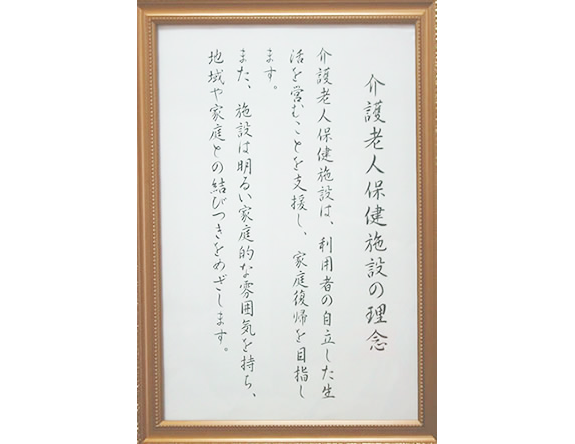 介護老人保健施設の理念
介護老人保健施設は、利用者の自立した生
活を営むことを支援し、家庭復帰を目指し
ます。
また、施設は明るい家庭的な雰囲気を持ち、
地域や家庭との結びつきをめざします。